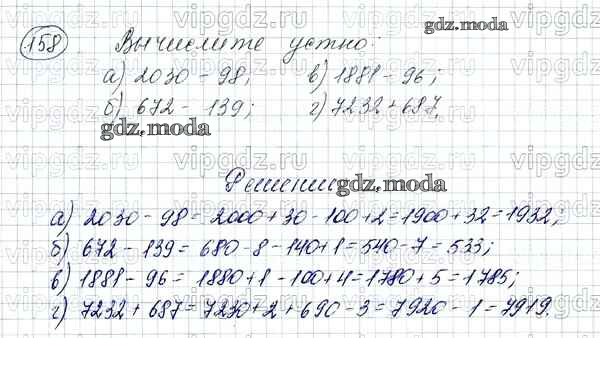 158 Вычислите устно: gdz.moda
а) 2030 - 98; в) 1881 - 96;
б) 672 - 139; г) 7232 + 687.
gdz.moda
Решение gdz.moda
а) 2030 - 98 = 2000 + 30 - 100 + 2 = 1900 + 32 = 1932;
б) 672 - 139 = 680 - 8 - 140 + 1 = 540 - 7 = 533;
в) 1881 - 96 = 1880 + 1 - 100 + 4 = 1780 + 5 = 1785;
г) 7232 + 687 = 7230 + 2 + 690 - 3 = 7920 - 1 = 7919.
vipgdz.ru